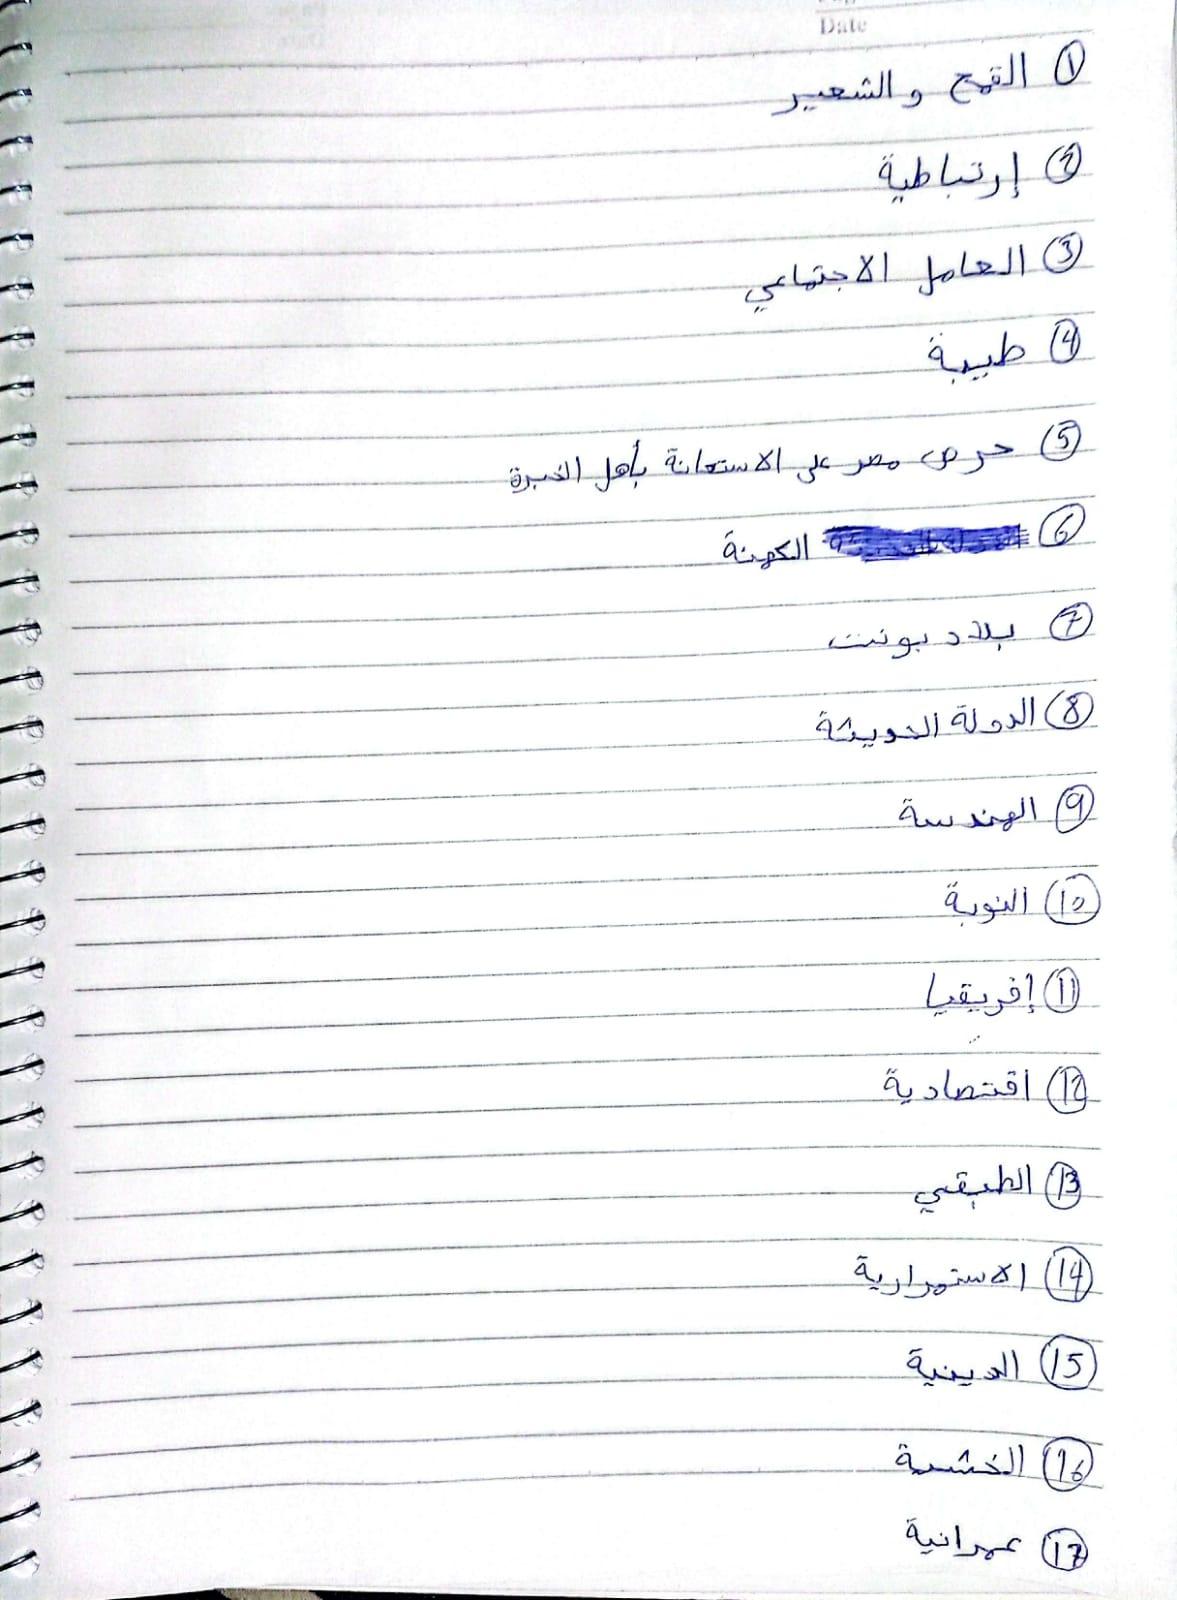 Date
① القمح و الشعير
② إرتباطية
③ العامل الاجتماعي
④ طيبة
⑤ حرص مصر على الاستعانة بأهل الخبرة
⑥ الكهنة
⑦ بلاد بونت
⑧ الدولة الحديثة
⑨ الهندسة
⑩ النوبة
⑪ إفريقيا
⑫ اقتصادية
⑬ الطبقي
⑭ الاستمرارية
⑮ الدينية
⑯ الخشبية
⑰ عمرانية